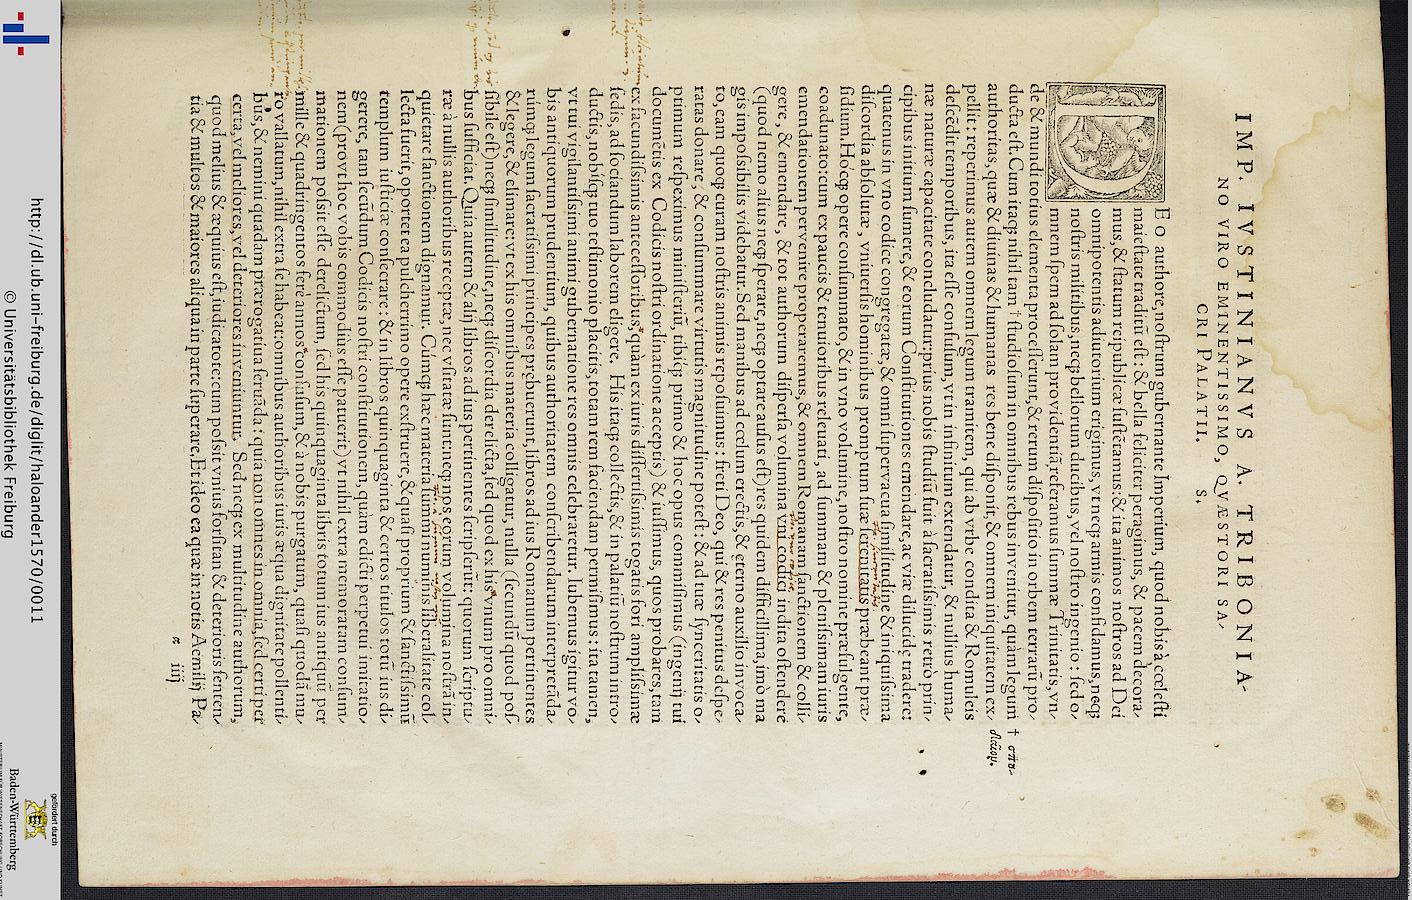 IMP. IVSTINIANVS A. TRIBONIA-
NO VIRO EMINENTISSIMO, QVÆSTORI SA-
CRI PALATII. S.
DEO authore, noſtrum gubernante Imperium, quod nobis à cœleſti
maieſtate traditũ eſt: & bella feliciter peragimus, & pacem decora-
mus, & ſtatum reipublicæ ſuſtẽtamus: & ita animos noſtros ad Dei
omnipotentis adiutorium erigimus, vt neqꝫ armis confidamus, neqꝫ
noſtris militibus, neqꝫ bellorum ducibus, vel noſtro ingenio: ſed o-
mnem ſpem ad ſolam prouidentiã referamus ſummæ Trinitatis, vn-
de & mundi totius elementa proceſſerunt, & rerum diſpoſitio in orbem terrarũ pro-
ducta eſt. Cum itaqꝫ nihil tam † ſtudioſum in omnibus rebus inuenitur, quàm legum
authoritas, quæ & diuinas & humanas res bene diſponit, & omnem iniquitatem ex-
pellit: reperimus autem omnem legum tramitem, qui ab vrbe condita & Romuleis
deſcẽdit temporibus, ita eſſe confuſum, vt in infinitum extendatur, & nullius huma-
næ naturæ capacitate concludatur: prius nobis ſtudiũ fuit à ſacratiſsimis retrò prin-
cipibus initium ſumere, & eorum Conſtitutiones emendare, ac viæ dilucidę tradere:
quatenus in vno codice congregatæ, & omni ſuperuacua ſimilitudine & iniquiſsima
diſcordia abſolutæ, vniuerſis hominibus promptum ſuæ ſerenitatis præbeant præ-
ſidium. Hocqꝫ opere conſummato, & in vno volumine, noſtro nomine præfulgente,
coadunato: cum ex paucis & tenuioribus releuati, ad ſummam & pleniſsimam iuris
emendationem peruenire properaremus, & omnem Romanam ſanctionem & colli-
gere, & emendare, & tot authorum diſperſa volumina vni codici indita oſtendere
(quod nemo alius neqꝫ ſperare, neqꝫ optare auſus eſt) res quidem difficillima, imò ma
gis impoſsibilis videbatur. Sed manibus ad cœlum erectis, & ęterno auxilio inuoca-
to, eam quoqꝫ curam noſtris animis repoſuimus: freti Deo, qui & res penitus deſpe-
ratas donare, & conſummare virtutis magnitudine poteſt: & ad tuæ ſynceritatis o-
ptimum reſpeximus miniſteriũ, tibiqꝫ primo & hoc opus commiſimus (ingenij tui
documẽtis ex Codicis noſtri ordinatione acceptis) & iuſsimus, quos probares, tam
ex facundiſsimis anteceſſoribus, quàm ex iuris diſertiſsimis togatis fori ampliſsimæ
ſedis, ad ſociandum laborem eligere. His itaqꝫ collectis, & in palatiũ noſtrum intro-
ductis, nobiſqꝫ tuo teſtimonio placitis, totam rem faciendam permiſimus: ita tamen,
vt tui vigilantiſsimi animi gubernatione res omnis celebraretur. Iubemus igitur vo-
bis antiquorum prudentium, quibus authoritatem conſcribendarum interpretãda-
rúmqꝫ legum ſacratiſsimi principes prębuerunt, libros ad ius Romanum pertinentes
& legere, & elimare: vt ex his omnibus materia colligatur, nulla (ſecundũ quod poſ-
ſibile eſt) neqꝫ ſimilitudine, neqꝫ diſcordia derelicta, ſed quod ex his vnum pro omni-
bus ſufficiat. Quia autem & alij libros ad ius pertinentes ſcripſerũt: quorum ſcriptu-
ræ à nullis authoribus receptæ, nec vſitatæ ſunt: neqꝫ nos eorum volumina noſtrã in-
quietare ſanctionem dignamur. Cúmqꝫ hæc materia ſummi numinis liberalitate col-
lecta fuerit, oportet ea pulcherrimo opere exſtruere, & quaſi proprium & ſanctiſsimũ
templum iuſticiæ conſecrare: & in libros quinquaginta & certos titulos totũ ius di-
gerere, tam ſecũdum Codicis noſtri conſtitutionem, quàm edicti perpetui imitatio-
nem (prout hoc vobis commodius eſſe patuerit) vt nihil extra memoratam conſum-
mationem poſsit eſſe derelictum, ſed his quinquaginta libris totum ius antiquũ per
mille & quadringentos ferè annos confuſum, & à nobis purgatum, quaſi quodã mu-
ro vallatum, nihil extra ſe habeat: omnibus authoribus iuris æqua dignitate pollenti-
bus, & nemini quadam prærogatiua ſeruãda: quia non omnes in omnia, ſed certi per
certa, vel meliores, vel deteriores inueniuntur. Sed neqꝫ ex multitudine authorum,
quod melius & æquius eſt, iudicatote: cum poſsit vnius forſitan & deterioris ſenten-
tia & multos & maiores aliqua in parte ſuperare. Et ideo ea quæ in notis Aemilij Pa-
æ iiij
† σπȣ-
δαῖον.
http://dl.ub.uni-freiburg.de/diglit/haloander1570/0011
© Universitätsbibliothek Freiburg
gefördert durch
Baden-Württemberg